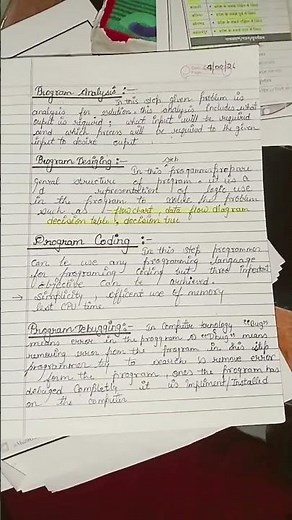 Program Analysis :-
In this step given problem is
analysis for solution. this analysis includes what
ouput is required, what input will be required
and which process will be required to the given
input to desire ouput.
Program Desiging :-
In this step programmer prepare
genral structure of program it is a
representationl of logic use
in the program to solve the problem
such as - flowchart, data flow diagram
decission table, decission tree
Program Coding :-
In this step programmer
can be use any programming language
for programing coding but three important
objective can be achieved.
→ Simplicity, efficent use of memory
last CPU time
Program Debugging :- In Computer tecnology "Bug"
means error in the program so "Dbug" means
removing error from the program in this step
programmer try to search & remove error
form the program, ones the program has
debuged Completly it is impliment/Installed
on the computer